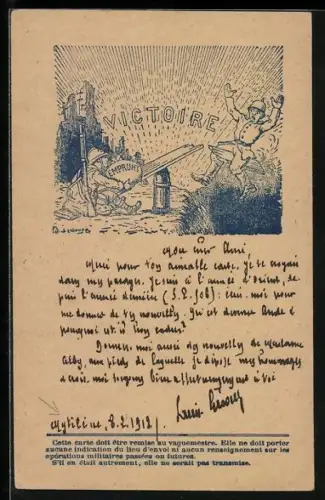 VICTOIRE
EMPRUNT
Mon cher Ami,
Merci pour ton aimable carte. Je te croyais
dans mes parages. Je suis à l'armée d'Orient, de-
puis l'année dernière (S.P. 506) : écris moi pour
me donner de tes nouvelles. Qu'est devenu
pourquoi est-il
Donnes moi aussi des nouvelles de Madame
aux pieds de laquelle je dépose mes hommages
et crois moi toujours bien affectueusement à toi
Louis
Mytilène, 8.2.1918
Cette carte doit être remise au vaguemestre. Elle ne doit porter
aucune indication du lieu d'envoi ni aucun renseignement sur les
opérations militaires passées ou futures.
S'il en était autrement, elle ne serait pas transmise.